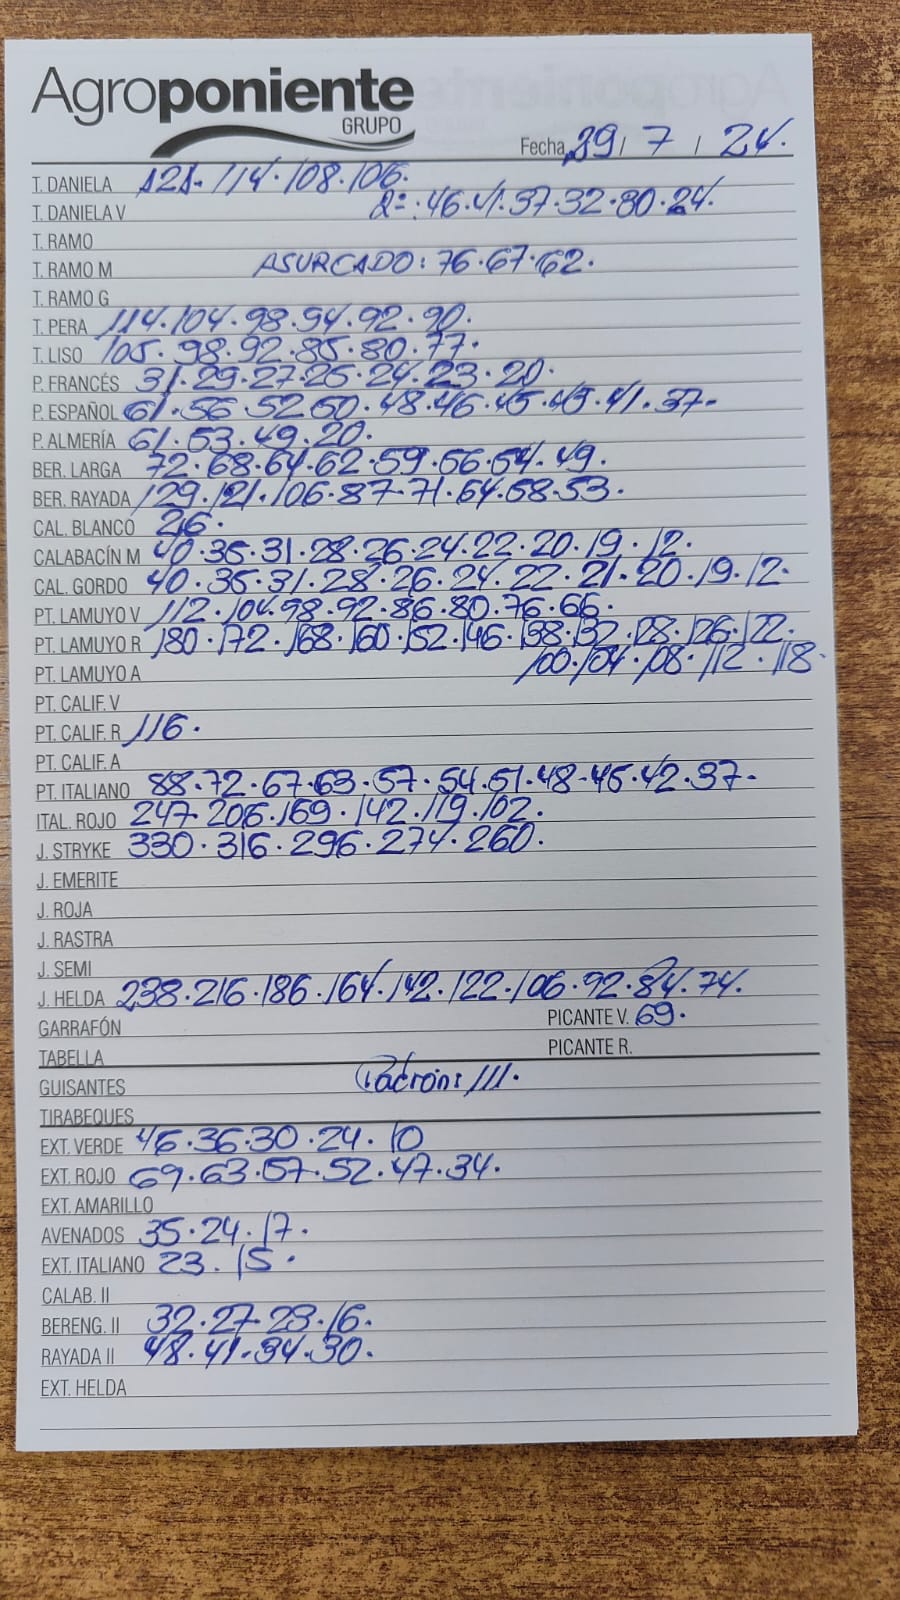 Agroponiente
GRUPO
Fecha 29 / 7 / 24.
T. DANIELA 121. 114. 108. 106.
T. DANIELA V 2=.46.41.37.32.80.24.
T. RAMO
T. RAMO M ASURCADO: 76.67.62.
T. RAMO G
T. PERA 114.104.98.94.92.90.
T. LISO 105.98.92.85.80.77.
P. FRANCÉS 31.29.27.25.24.23.20.
P. ESPAÑOL 61.56.52.50.48.46.45.43.41.37.
P. ALMERÍA 61.53.49.20.
BER. LARGA 72.68.64.62.59.56.54.49.
BER. RAYADA 129.121.106.87.71.64.58.53.
CAL. BLANCO 26.
CALABACÍN M 40.35.31.28.26.24.22.20.19.12.
CAL. GORDO 40.35.31.28.26.24.22.21.20.19.12.
PT. LAMUYO V 112.104.98.92.86.80.76.66.
PT. LAMUYO R 180.172.168.160.152.146.138.132.128.126.122.
PT. LAMUYO A 100.104.108.112.118.
PT. CALIF. V
PT. CALIF. R 116.
PT. CALIF. A
PT. ITALIANO 88.72.67.63.57.54.51.48.45.42.37.
ITAL. ROJO 247.206.169.142.119.102.
J. STRYKE 330.316.296.274.260.
J. EMERITE
J. ROJA
J. RASTRA
J. SEMI
J. HELDA 238.216.186.164.142.122.106.92.84.74.
GARRAFÓN PICANTE V. 69.
TABELLA PICANTE R.
GUISANTES Padron: 111.
TIRABEQUES
EXT. VERDE 46.36.30.24.10
EXT. ROJO 69.63.57.52.47.34.
EXT. AMARILLO
AVENADOS 35.24.17.
EXT. ITALIANO 23.15.
CALAB. II
BERENG. II 32.27.23.16.
RAYADA II 48.41.34.30.
EXT. HELDA